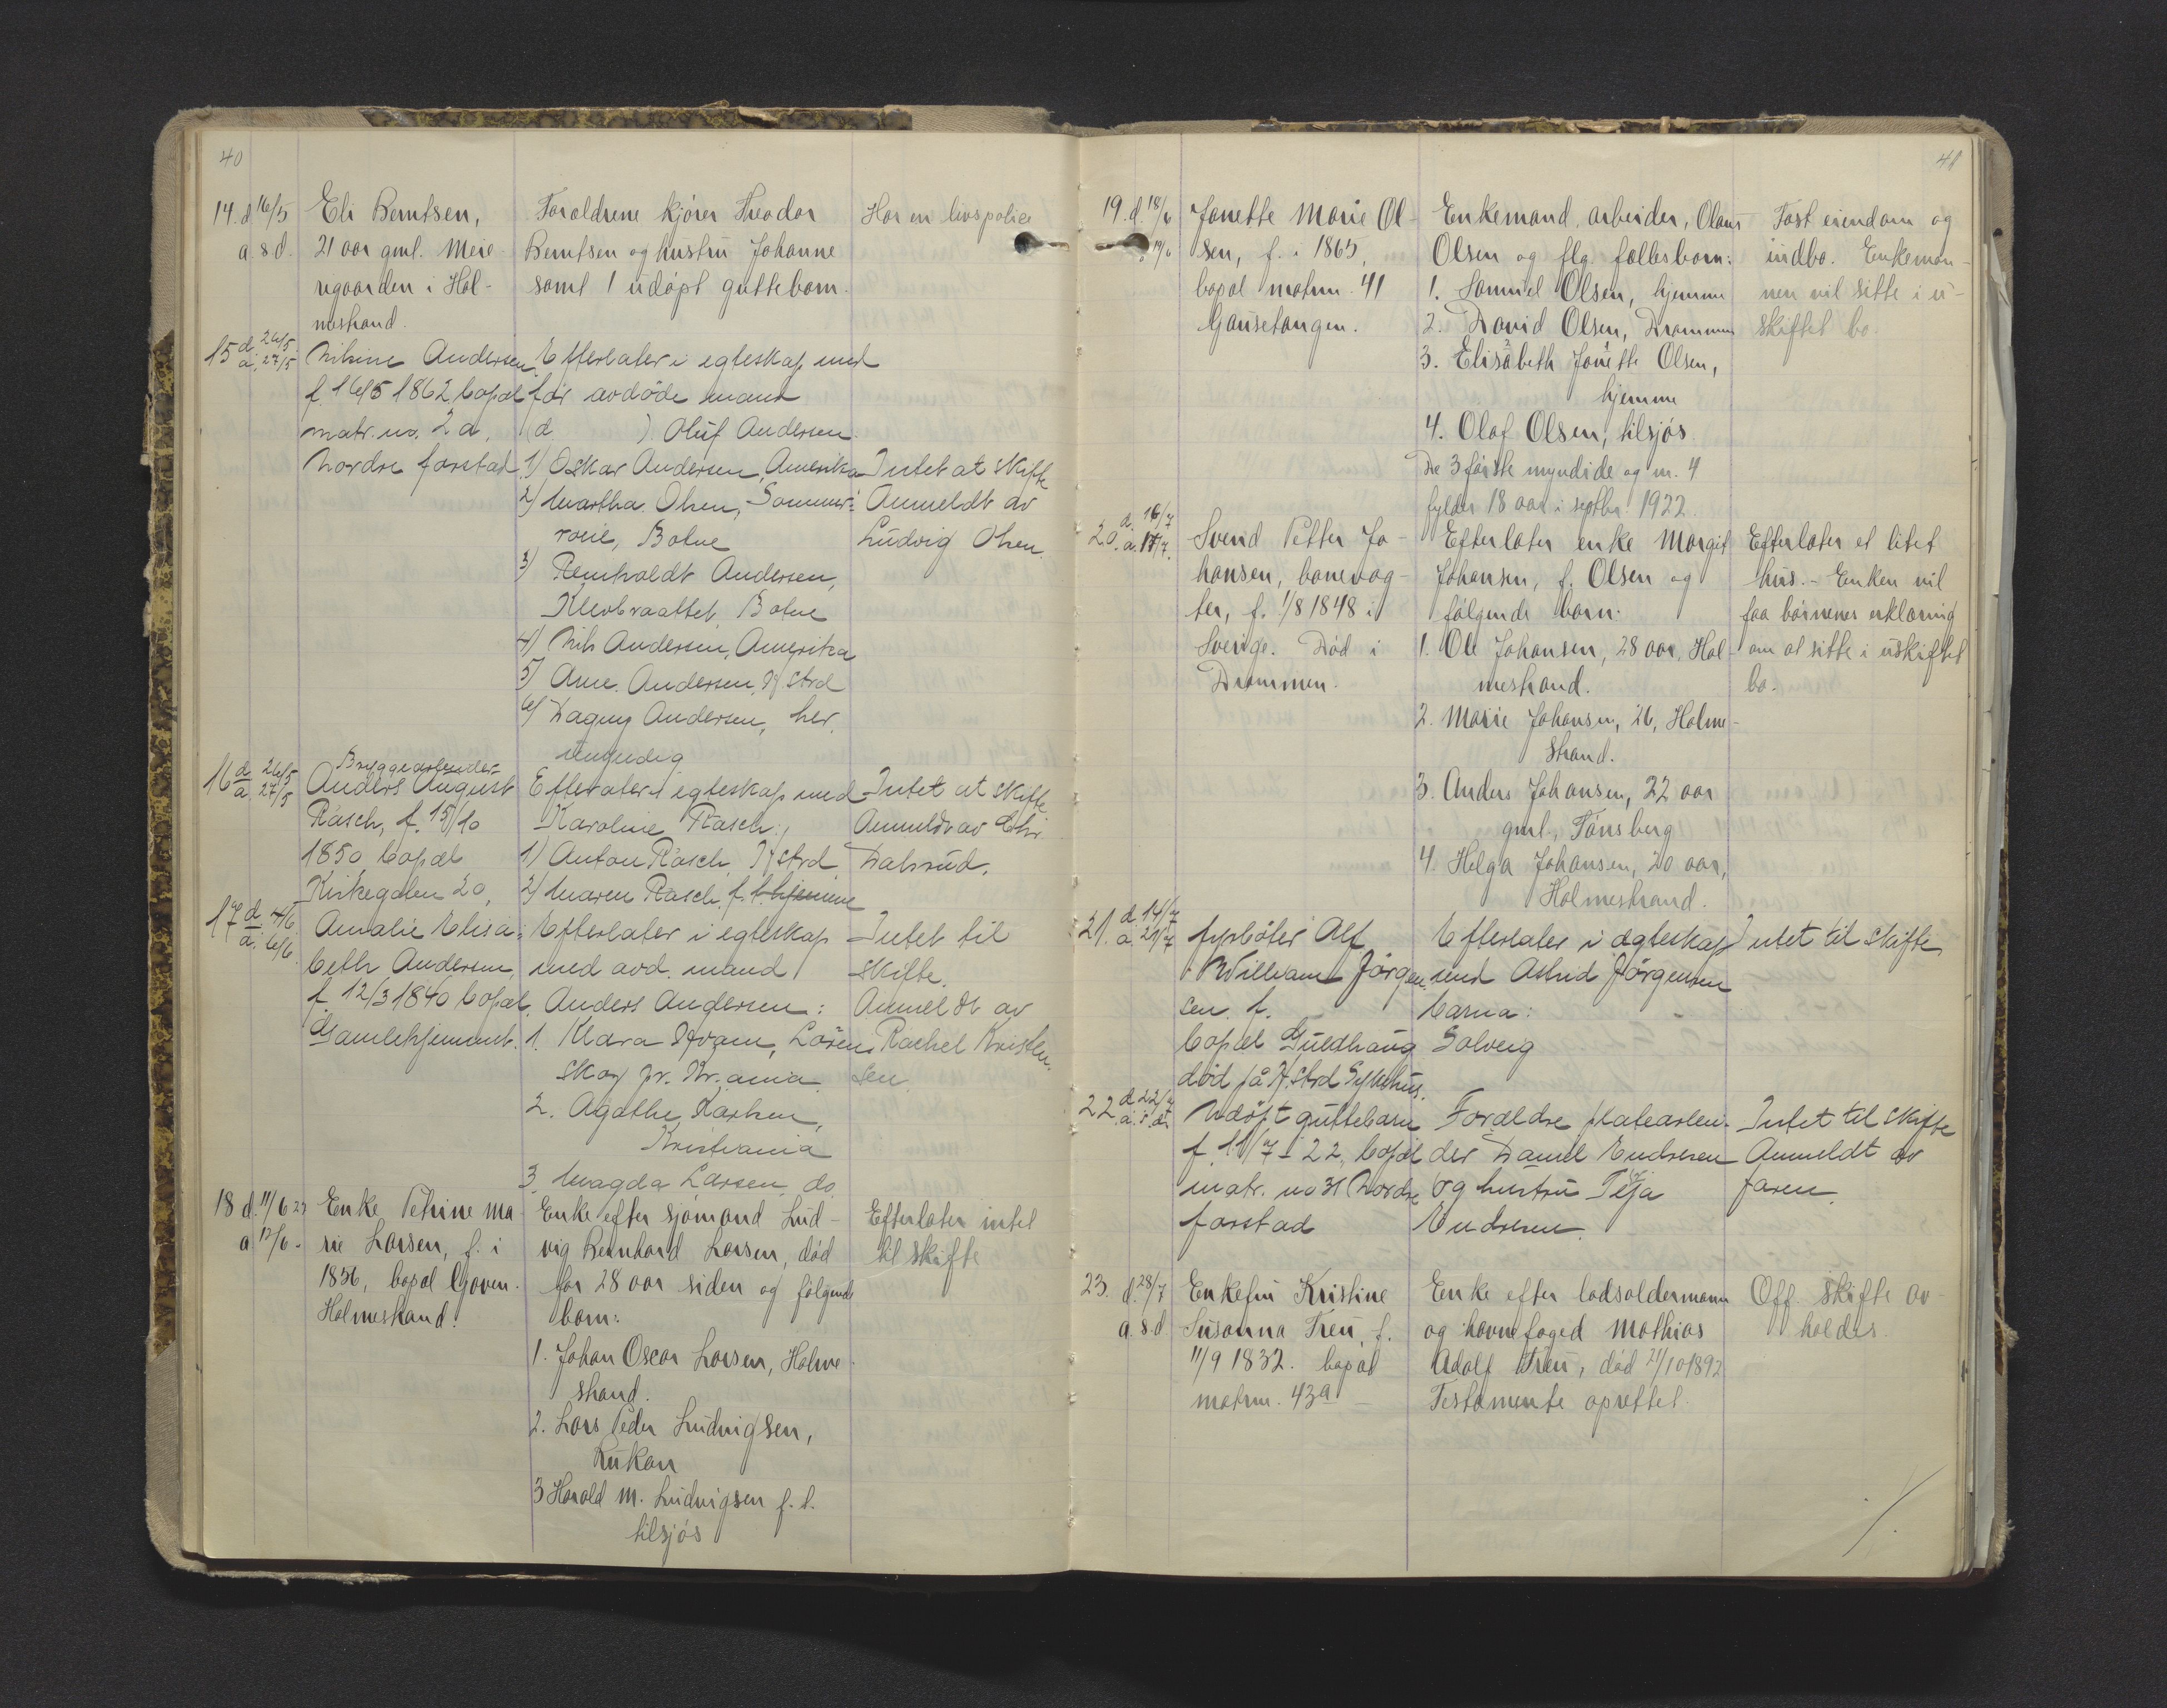 40
14. d 16/5 Eli Berntsen, Forældrene kjører Theodor Har en livspolice
a. s d. 21 aar gml. Meie- Berntsen og hustru Johanne
rigaarden i Hol- samt 1 udöpt guttebarn.
mestrand.
15 d. 26/5 a. 27/5 Andersen, Efterlater i egteskap med
f. 16/5 1862, bopæl før avdöde mand
matr. no. 2 a, (d. ) Oluf Andersen
Nordre forstad 1) Oskar Andersen, Amerika Intet at skifte
2) Martha Olsen, Anmeldt av
Botne Ludvig Olsen.
3) Andersen,
Botne
4) Nils Andersen, Amerika
5) Andersen, H.strd
6) Dagny Andersen, her,
umyndig
16 d. 26/5 a. 27/5 Bryggearbeider
Anders August Efterlater i egteskap med Intet at skifte
Rasch, f. 15/10 Karoline Rasch: Anmeldt av Chr.
1850 bopæl 1) Anton Rasch, H.strd
Kirkegaten 20, 2) Maren Rasch, f. t. hjemme
17 d. 4/6 a. 6/6. Amalie Elisa- Efterlater i egteskap Intet til
beth Andersen, med avd. mand skifte.
f. 12/3 1840 bopæl Anders Andersen: Anmeldt av
Gamlehjemmet. 1. Klara Lören- Rachel Kristen-
skog pr. Kr.ania sen.
2. Agathe Karlsen,
Kristiania
3. Magda Larsen, do
18 d. 11/6 22 Enke Petrine Ma- Enke efter sjömand Lud- Efterlater intet
a 12/6 - rie Larsen, f. i vig Bernhard Larsen, død til skifte
1856, bopæl for 28 aar siden og følgende
Holmestrand. barn:
1. Johan Oscar Larsen, Holme-
strand.
2. Lars Peder Ludvigsen,
Rukan
3 Harald M. Ludvigsen f. t.
tilsjøs
41
19. d. 18/6 Janette Marie Ol- Enkemand, arbeider, Olaus Fast eiendom og
19/6 sen, f. i 1865, Olsen og flg. fællesbarn: indbo. Enkeman-
bopæl matrnr. 41 1. Samuel Olsen, hjemme nen vil sitte i u-
Gausetangen. 2. David Olsen, Drammen skiftet bo.
3. Elisabeth Janette Olsen,
hjemme
4. Olaf Olsen, tilsjøs.
De 3 første myndide og nr. 4
fylder 18 aar i septbr. 1922.
20. d. 16/7 a. 17/7. Svend Petter Jo- Efterlater enke Margit Efterlater et litet
hansen, banevog- Johansen, f. Olsen og hus. - Enken vil
ter, f. 1/8 1848 i følgende barn: faa børnenes erklæring
Sverige. Död i 1. Ole Johansen, 28 aar, Hol- om at sitte i uskiftet
Drammen. mestrand. bo.
2. Marie Johansen, 26, Holme-
strand.
3. Anders Johansen, 22 aar
gml., Tønsberg
4. Helga Johansen, 20 aar,
Holmestrand.
21. d. 14/7 a. 21/7 fyrböter Alf Efterlater i ægteskap Intet til skifte
William Jörgen- med Astrid Jörgensen
sen, f. barna:
bopæl Guldhaug Solveig
död på H.strd Sykehus.
22. d. 22/7 a. s. d. Udöpt guttebarn Forældre platearbei- Intet til skifte
f. 11/7 - 22, bopæl der Daniel Endresen Anmeldt av
matr. no 31 Nordre og hustru faren.
forstad Endresen.
23. d. 28/7 Enkefru Kristine Enke efter lodsoldermann Off. skifte av-
a. s. d Susanna Treu, f. og havnefoged Mathias holdes.
11/9 1832. bopæl Adolf Treu, død 21/10 1892
matrnr. 43a - Testamente oprettet.